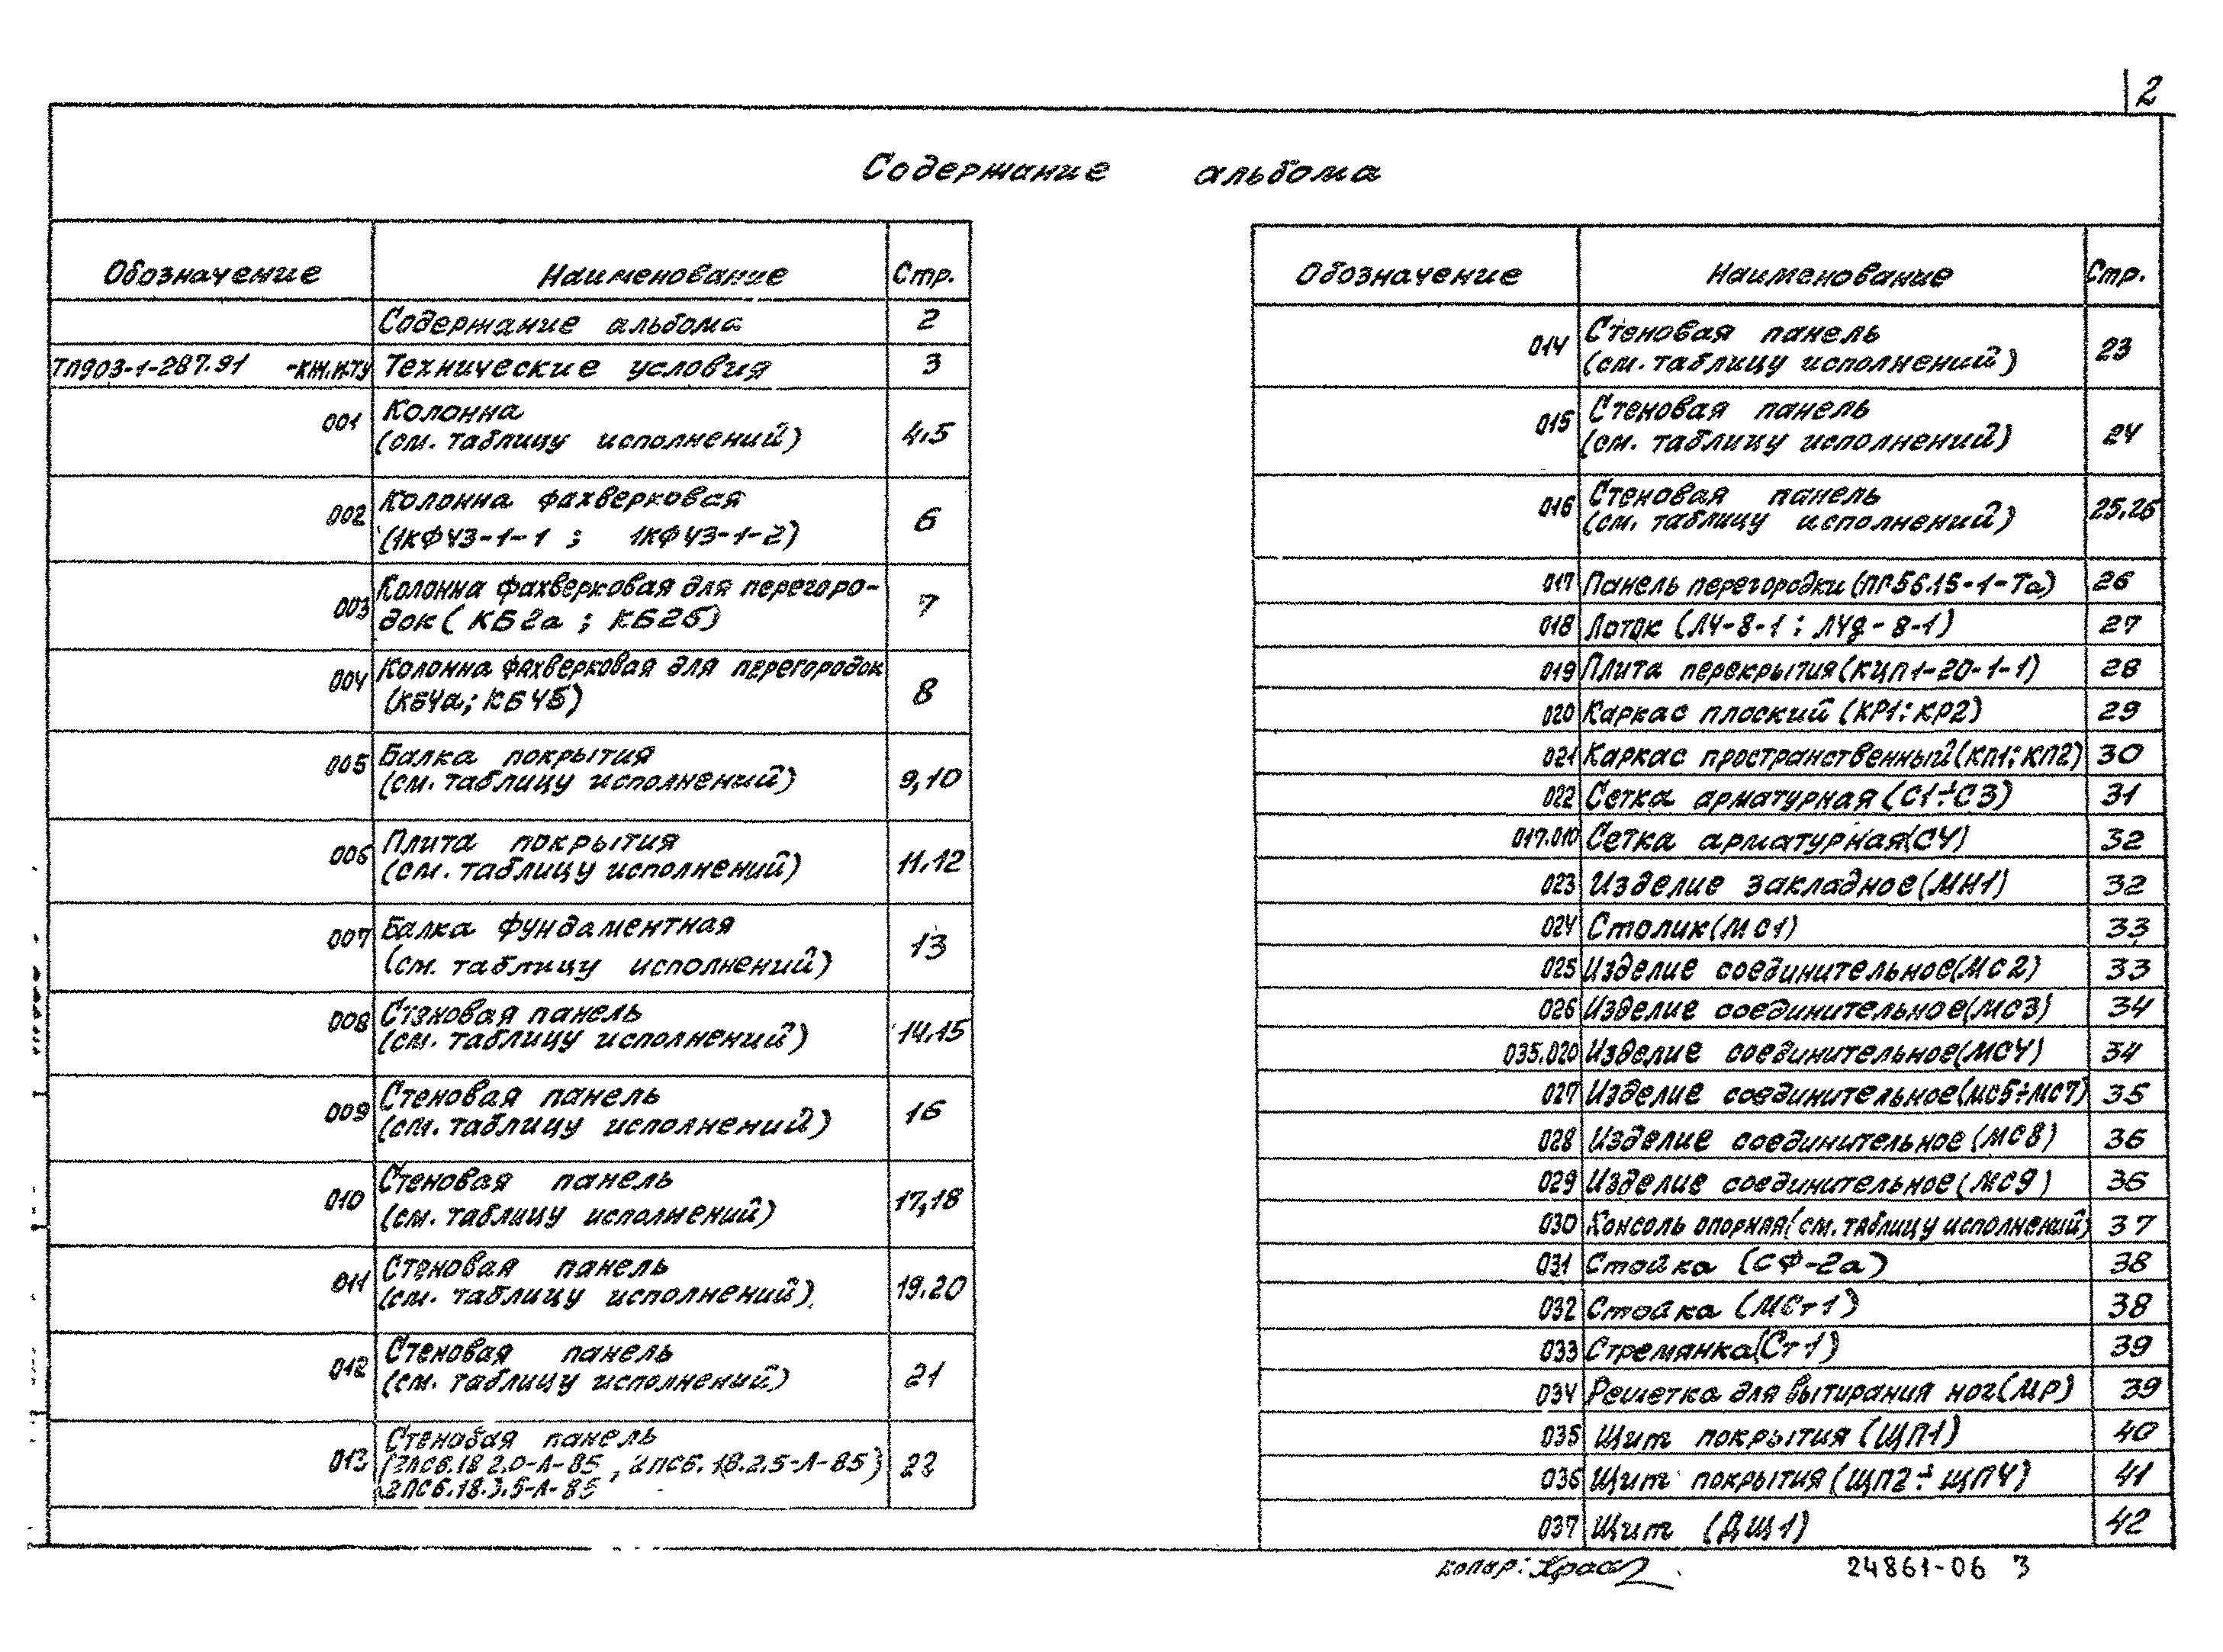 2
Содержание альбома
Обозначение Наименование Стр.
Содержание альбома 2
ТП903-1-287.91 -КЖ.И.ТУ Технические условия 3
001 Колонна
(см. таблицу исполнений) 4,5
002 Колонна фахверковая
(1КФ43-1-1 ; 1КФ43-1-2) 6
003 Колонна фахверковая для перегоро-
док ( КБ2а ; КБ2б) 7
004 Колонна фахверковая для перегородок
(КБ4а; КБ4б) 8
005 Балка покрытия
(см. таблицу исполнений) 9,10
006 Плита покрытия
(см. таблицу исполнений) 11.12
007 Балка фундаментная
(см. таблицу исполнений) 13
008 Стеновая панель
(см. таблицу исполнений) 14.15
009 Стеновая панель
(см. таблицу исполнений) 16
010 Стеновая панель
(см. таблицу исполнений) 17,18
011 Стеновая панель
(см. таблицу исполнений) 19.20
012 Стеновая панель
(см. таблицу исполнений) 21
013 Стеновая панель
(2ПС6.18 2.0-Л-85 , 2ПС6.18.2.5-Л-85) 22
2ПС6.18.3.5-Л-85
Обозначение Наименование Стр.
014 Стеновая панель
(см. таблицу исполнений) 23
015 Стеновая панель
(см. таблицу исполнений) 24
016 Стеновая панель
(см. таблицу исполнений) 25.26
017 Панель перегородки (ПГ56.15-1-Та) 26
018 Лоток (Л4-8-1 ; Л4д-8-1) 27
019 Плита перекрытия (КЦП1-20-1-1) 28
020 Каркас плоский (КР1; КР2) 29
021 Каркас пространственный (КП1; КП2) 30
022 Сетка арматурная (С1÷С3) 31
017.010 Сетка арматурная (С4) 32
023 Изделие закладное (МН1) 32
024 Столик (МС1) 33
025 Изделие соединительное (МС2) 33
026 Изделие соединительное (МС3) 34
035.020 Изделие соединительное (МС4) 34
027 Изделие соединительное (МС5÷МС7) 35
028 Изделие соединительное (МС8) 36
029 Изделие соединительное (МС9) 36
030 Консоль опорная (см. таблицу исполнений) 37
031 Стойка (СФ-2а) 38
032 Стойка (МСт1) 38
033 Стремянка (Ст1) 39
034 Решетка для вытирания ног (МР) 39
035 Щит покрытия (ЩП1) 40
036 Щит покрытия (ЩП2÷ЩП4) 41
037 Щит (ДЩ1) 42
копир:
24861-06 3